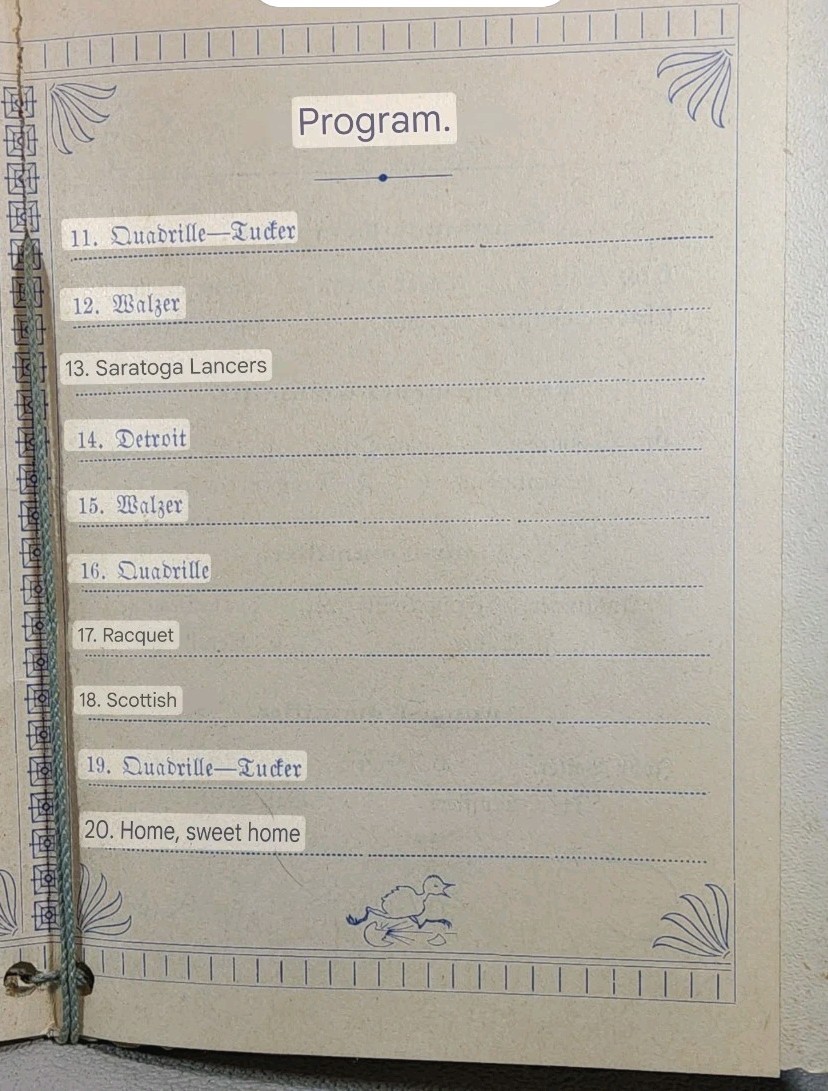 Program.
11. Quadrille—Tucker
12. Walzer
13. Saratoga Lancers
14. Detroit
15. Walzer
16. Quadrille
17. Racquet
18. Scottish
19. Quadrille—Tucker
20. Home, sweet home